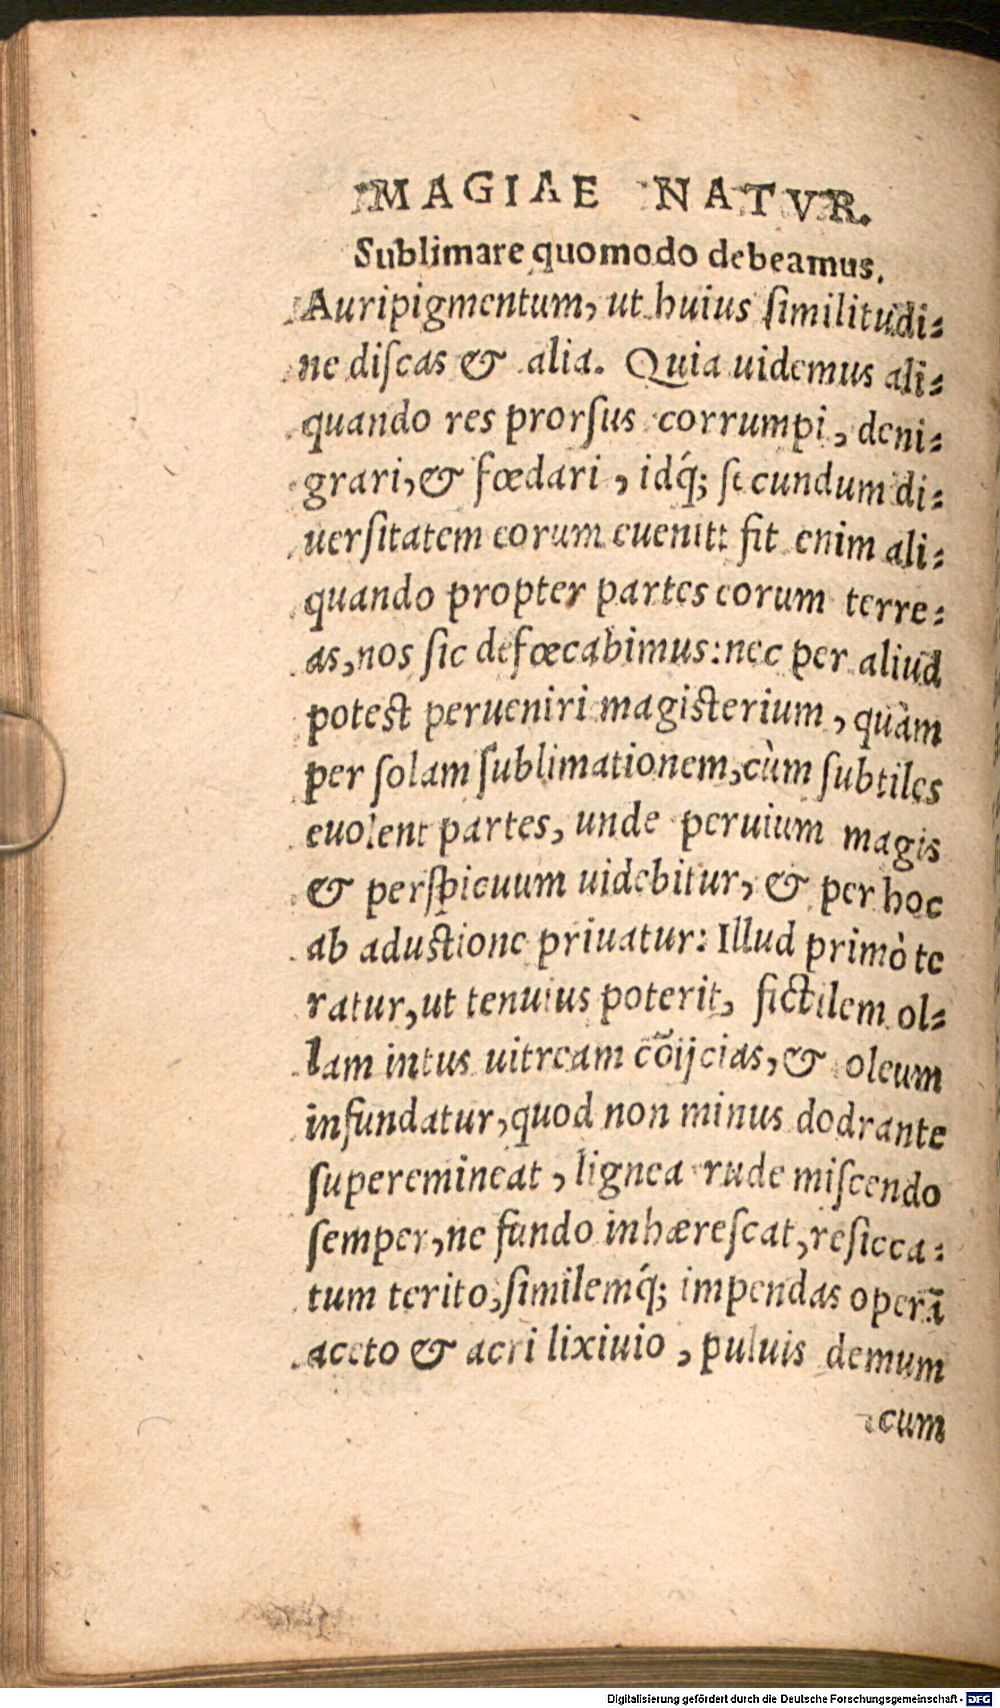 MAGIAE NATVR.
Sublimare quomodo debeamus.
Auripigmentum, ut huius ſimilitudi-
ne diſcas & alia. Quia uidemus ali-
quando res prorſus corrumpi, deni-
grari, & fœdari, idq́; ſecundum di-
uerſitatem eorum euenit: fit enim ali-
quando propter partes eorum terre-
as, nos ſic defœcabimus: nec per aliud
poteſt perueniri magiſterium, quàm
per ſolam ſublimationem, cùm ſubtiles
euolent partes, unde peruium magis
& perſpicuum uidebitur, & per hoc
ab aduſtione priuatur: Illud primò te
ratur, ut tenuius poterit, fictilem ol-
lam intus uitream cõijcias, & oleum
infundatur, quod non minus dodrante
ſuperemineat, lignea rude miſcendo
ſemper, ne fundo inhæreſcat, reſicca-
tum terito, ſimilemq́; impendas operã
aceto & acri lixiuio, puluis demum
cum
Digitalisierung gefördert durch die Deutsche Forschungsgemeinschaft - DFG